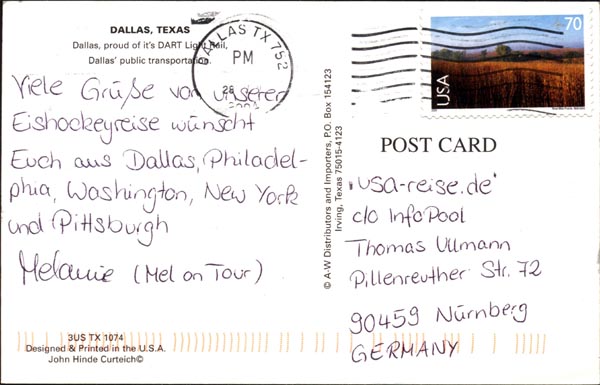 DALLAS, TEXAS
Dallas, proud of it's DART Light Rail,
Dallas' public transportation.
DALLAS TX 752
PM
26
70
USA
Viele Grüße von unserer
Eishockeyreise wünscht
Euch aus Dallas, Philadel-
phia, Washington, New York
und Pittsburgh
Melanie (Mel on Tour)
© A-W Distributors and Importers, P.O. Box 154123
Irving, Texas 75015-4123
POST CARD
'usa-reise.de'
c/o InfoPool
Thomas Ullmann
Pillenreuther Str. 72
90459 Nürnberg
GERMANY
3US TX 1074
Designed & Printed in the U.S.A.
John Hinde Curteich©